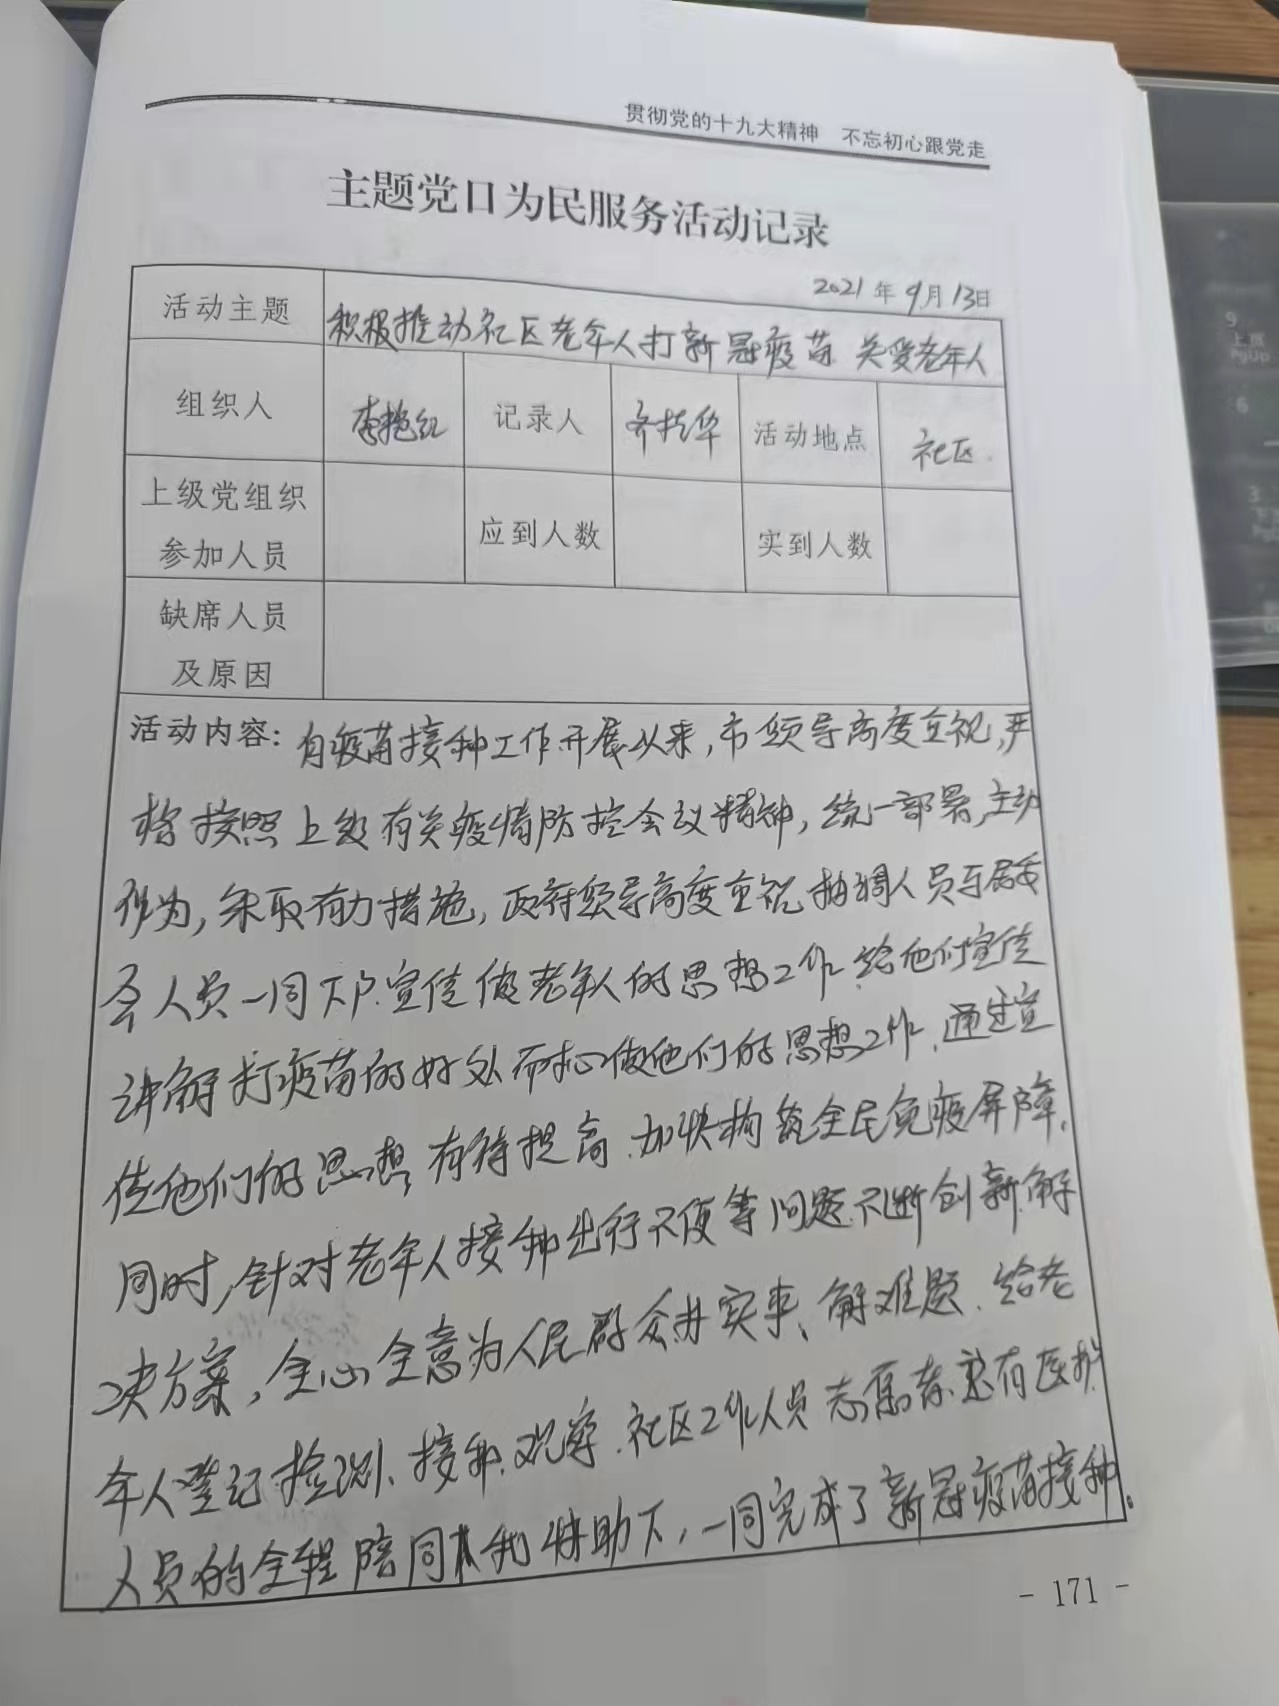 贯彻党的十九大精神 不忘初心跟党走
主题党日为民服务活动记录
2021年9月13日
活动主题 积极推动社区老年人打新冠疫苗 关爱老年人
组织人 李艳红 记录人 齐桂华 活动地点 社区
上级党组织
参加人员 应到人数 实到人数
缺席人员
及原因
活动内容：自疫苗接种工作开展以来，市领导高度重视，严
格按照上级有关疫情防控会议精神，统一部署，主动
作为，采取有力措施，政府领导高度重视抽调人员与居委
会人员一同下户宣传做老年人的思想工作、给他们宣传
讲解打疫苗的好处耐心做他们的思想工作、通过宣
传他们的思想有待提高、加快构筑全民免疫屏障，
同时，针对老年人接种出行不便等问题不断创新解
决方案，全心全意为人民群众办实事、解难题、给老
年人登记检测、接种、观察、社区工作人员志愿者还有医护
人员的全程陪同和协助下，一同完成了新冠疫苗接种。
- 171 -
9
上页
PgUp
6
3